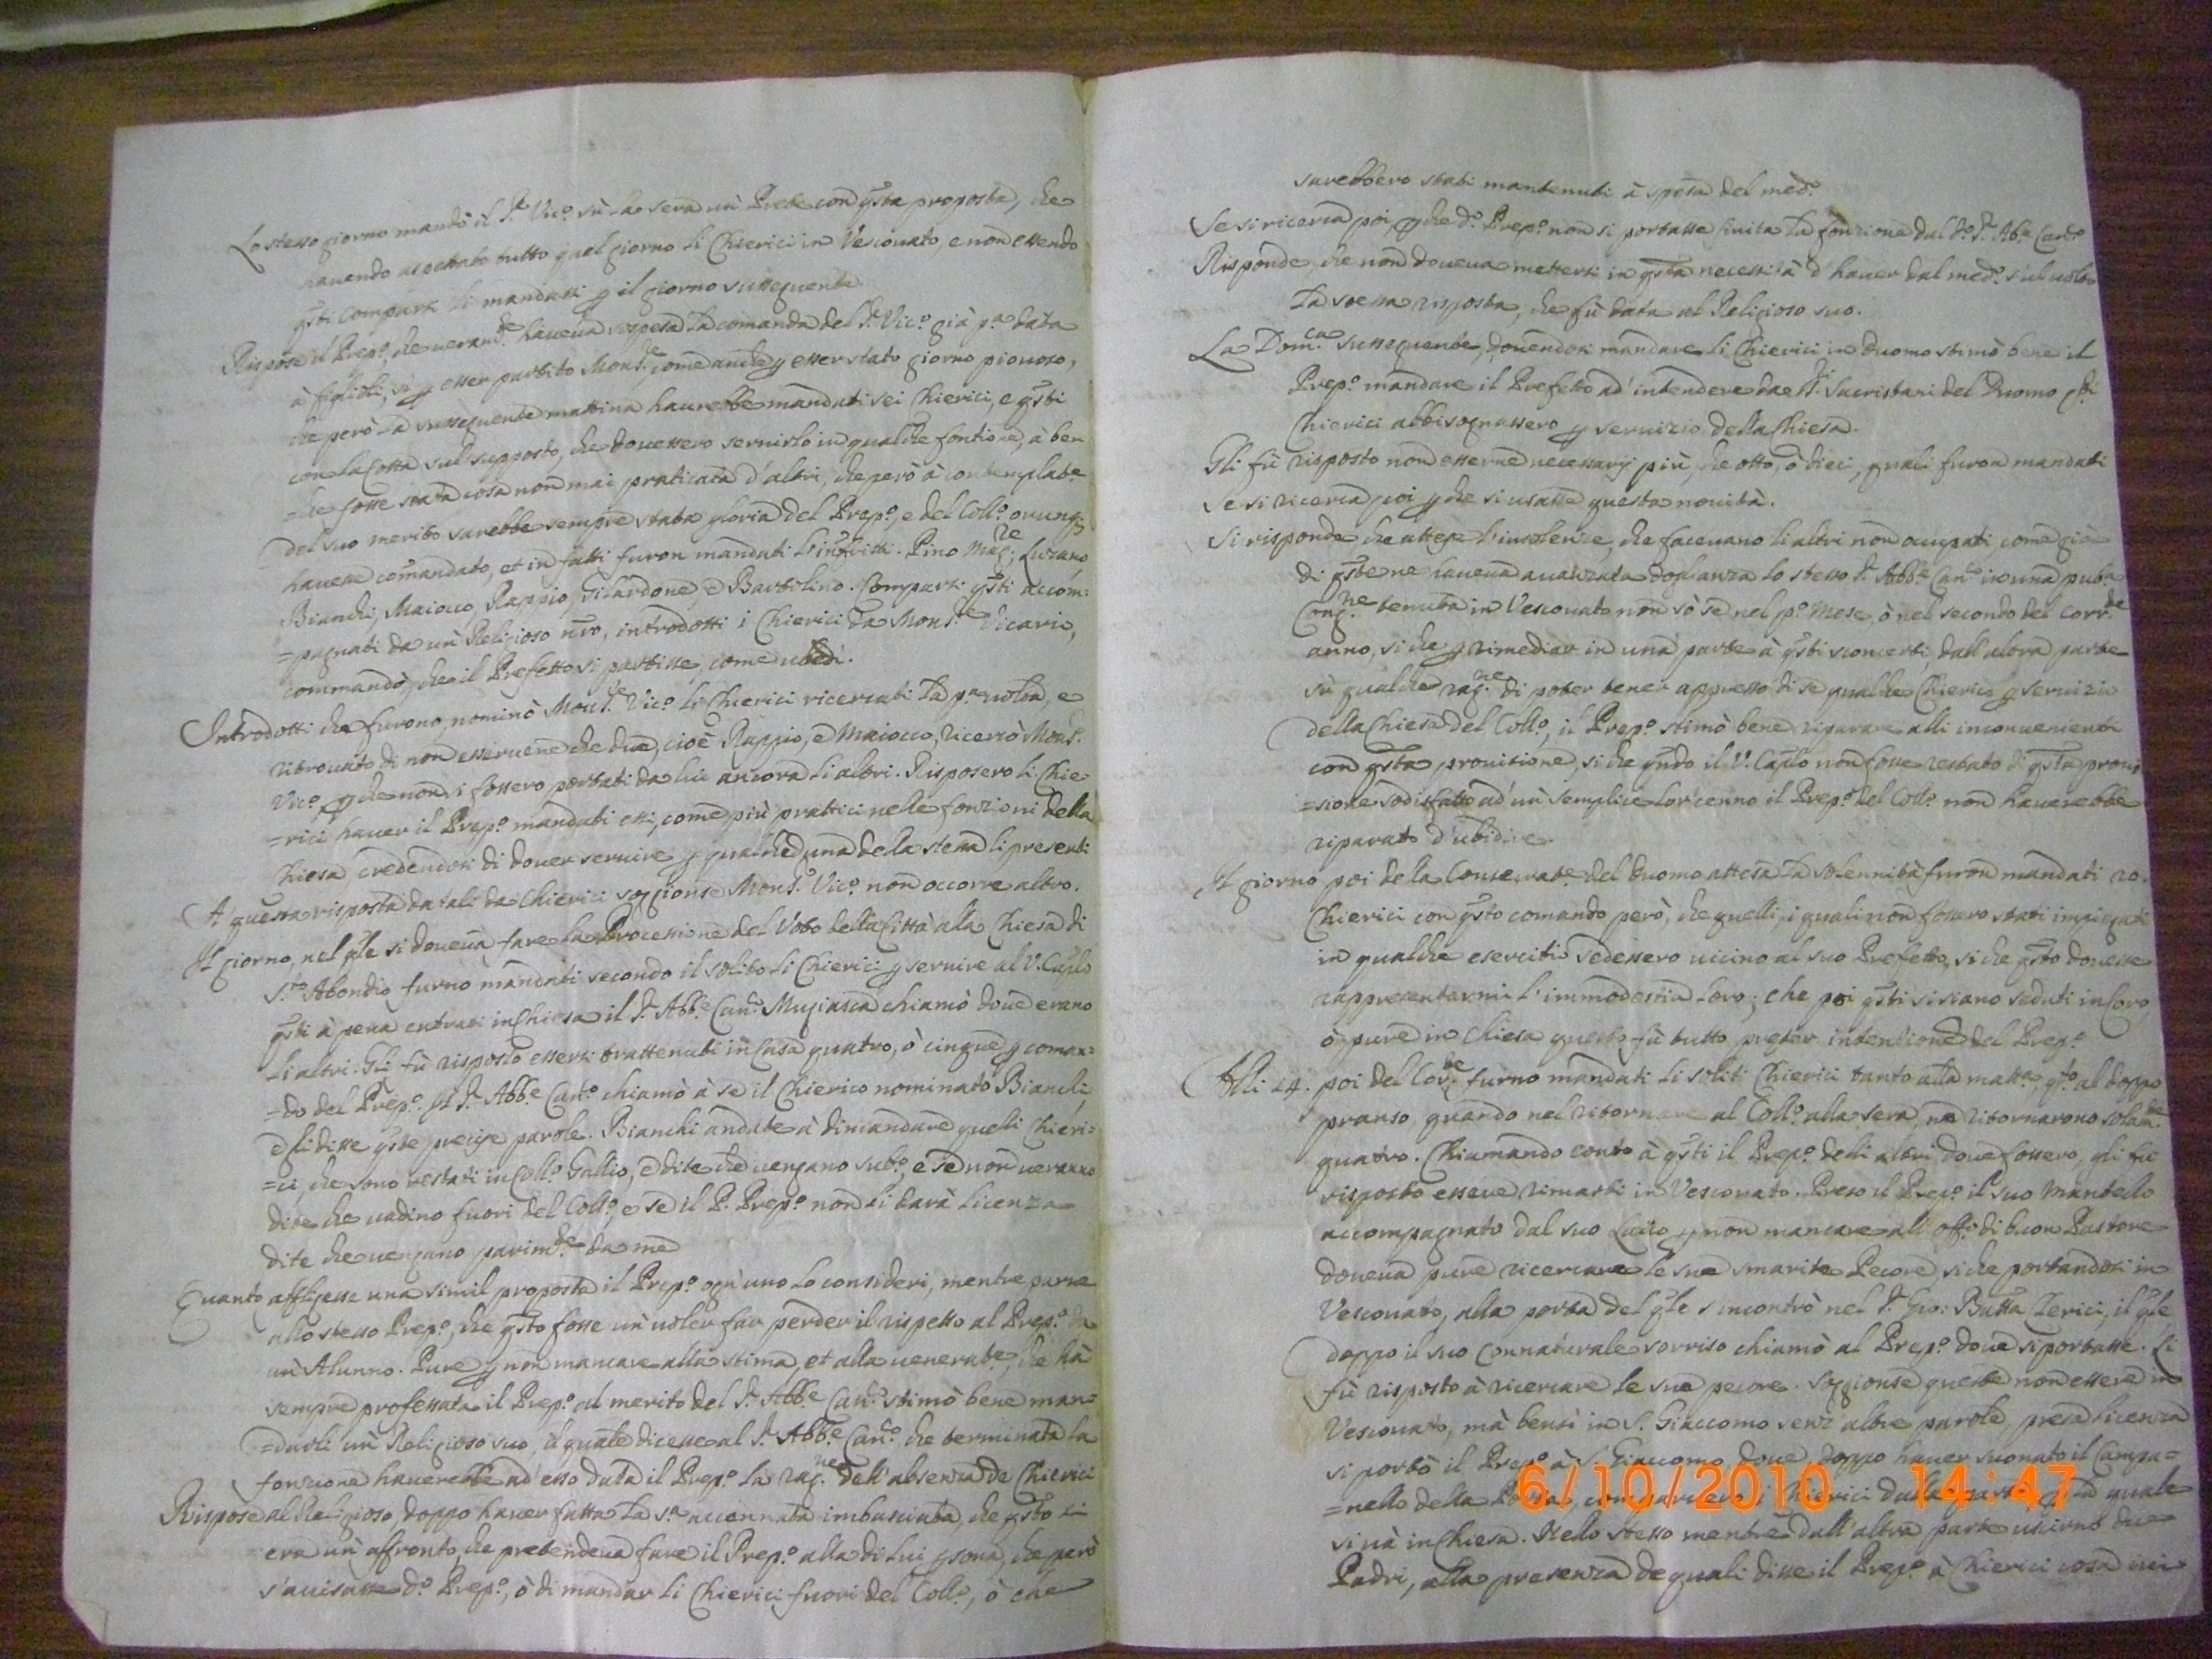 Lo stesso giorno mandò il Sr. Vico. sù la sera un Prete con gsta proposta, che
havendo aspettato tutto quel giorno li Chierici in Vescovato, e non essendo
gsti comparsi li mandassi p il giorno susseguente.
Rispose il Prepo. che veramte. haveva sospesa la comanda del Sr. Vico. già pa. data
à figlioli, sì p esser partito Monsre. come anche p esser stato giorno piovoso,
che però la susseguente mattina haverebbe mandati sei Chierici, e gsti
con la Cotta sul supposto, che dovessero servirlo in qualche fontione, à ben
=che fosse stata cosa non mai praticata d'altri, che però à contemplate.
del suo merito sarebbe sempre stata gloria del Prepo. e del Collo. ovunq;
havesse comandato, et in fatti furon mandati l'infritti. Pino Magre; Luzano
Bianchi, Maiocco, Rappio, Gilardone, e Bartolino. Comparsi gsti accom:
=pagnati da un Religioso nro, introdotti i Chierici da Monsre. Vicario,
commandò, che il Prefetto si partisse, come ubedì.
Introdotti che furono, nominò Monsre. Vico. li Chierici ricercati la pa. volta, e
ritrovato di non esservene che due, cioè Rappio, e Maiocco, ricercò Monsr.
Vico. p che non si fossero portati da lui ancora li altri. Risposero li Chie=
=rici haver il Prepo. mandati essi, come più prattici nelle fonzioni della
Chiesa, credendosi di dover servire p qualcheduna de la stessa li presenti
A questa risposta data li da Chierici soggionse Monsr. Vico. non occorre altro.
Il giorno, nel qle si doveva fare la Processione del Voto della Città alla Chiesa di
S.to Abondio furno mandati secondo il solito li Chierici p servire al V. Caplo
gsti à pena entrati in Chiesa il Sr. Abbe. Cano. Mugiasca chiamò dove erano
li altri. Gli fù risposto essersi trattenuti in Casa quatro, ò cinque p coman=
=do del Prepo. Il Sr. Abbe. Cano. chiamò à se il Chierico nominato Bianchi,
e li disse gste precise parole. Bianchi andate à dimandare quelli Chieri=
=ci, che sono restati in Collo. Gallio, e dite che vengano subo., e se non veranno
dite che vadino fuori del Collo., e se il P. Prepo. non li darà licenza
dite che vengano parimte. da me
Quanto affligesse una simil proposta il Prepo. ogn'uno lo consideri, mentre parve
allo stesso Prepo., che gsto fosse un voler far perder il rispetto al Prepo. da
un Alunno. Pure p non mancare alla stima, et alla venerate., che hà
sempre professata il Prepo. al merito del Sr. Abbe. Cano. stimò bene man=
=darli un Religioso suo, il quale dicesse al Sr. Abbe. Cano. che terminata la
fonzione haverebbe ad esso data il Prepo. la ragne. dell'absenza de Chierici
Rispose al Religioso, doppo haver fatta la sa. accennata imbasciata, che gsto li
era un affronto, che pretendeva fare il Prepo. alla di lui psona, che però
s'avisasse do. Prepo., ò di mandar li Chierici fuori del Collo., ò che
sarebbero stati mantenuti à spesa del medo.
Se si ricerca poi p che do. Prepo. non si portasse finita la fonzione dal do. Sr. Abe. Cano.
Risponde, che non doveva mettersi in gsta necessità d'haver dal medo. sul volto
la stessa risposta, che fù data al Religioso suo.
La Domca. susseguente, dovendosi mandare li Chierici in Duomo stimò bene il
Prepo. mandare il Prefetto ad' intendere da SSri. Sacristani del Duomo qti
Chierici abbisognassero p servizio della Chiesa.
Gli fù risposto non esserne necessarij più, che otto, ò dieci, quali furon mandati
Se si ricerca poi p che si usasse questa novità.
Si risponde, che attese l'insolenze, che facevano li altri non occupati, come già
di gste ne haveva avanzata doglianza lo stesso Sr. Abbe. Cano. in una puba.
Congne. tenuta in Vescovato non sò se nel po. mese, ò nel secondo del corrte.
anno, si che p rimediar in una parte à gsti sconcerti, dall'altra parte
sù qualche ragne. di poter tener appresso di se qualche Chierico p servizio
della Chiesa del Collo., il Prepo. stimò bene riparare alli inconvenienti
con gsta provisione, si che qndo il V. Caplo non fosse restato di gsta provi
=sione sodisfatto ad'un semplice lor cenno il Prepo. del Collo. non haverebbe
riparato d'ubidire.
Il giorno poi de la Consecrate. del Duomo attesa la solennità furon mandati 20.
Chierici con gsto comando però, che quelli, i quali non fossero stati impiegati
in qualche esercitio sedessero vicino al suo Prefetto, si che gsto dovesse
rappresentarmi l'immodestia loro; che poi gsti si siano seduti in Coro,
ò pure in Chiesa questo fù tutto preter intentione del Prepo.
Alli 24. poi del Corte. furno mandati li soliti Chierici tanto alla matta. qto. al doppo
pranso, quando nel ritornare al Collo. alla sera, ne ritornarono solamte.
quatro. Chiamando conto à gsti il Prepo. delli altri dove fossero, gli fù
risposto essere rimasti in Vescovato. Preso il Prepo. il suo Mantello
accompagnato dal suo Laico p non mancare all'offo. di buon Pastore
doveva pure ricercare le sue smarite Pecore, si che portandosi in
Vescovato, alla porta del qle s'incontrò nel Sr. Gio: Batta Clerici, il qle
doppo il suo Connaturale sorriso chiamò al Prepo. dove si portasse. Li
fù risposto à ricercare le sue pecore. Soggionse queste non essere in
Vescovato, mà bensì in S. Giaccomo senz'altre parole, presa licenza
si portò il Prepo. à S. Giaccomo, dove doppo haver suonato il Campa=
=nello della i Chierici dalla parte p la quale
si và in Chiesa. Nello stesso mentre dall'altra parte uscirno due
Padri, alla presenza de quali disse il Prepo. à Chierici cosa ivi
6/10/2010 14:47